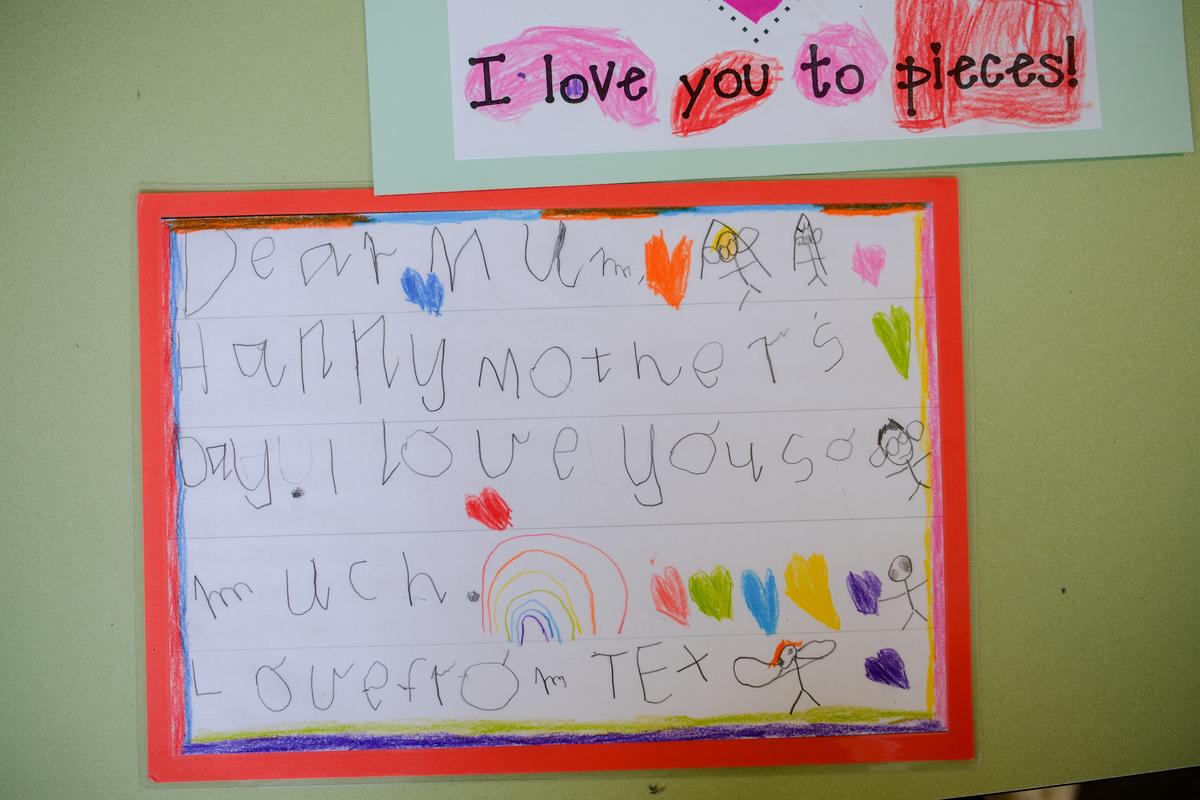 I love you to pieces!
Dear MUm,
Happy Mother's
Day. I love you so
much.
Love from TEX